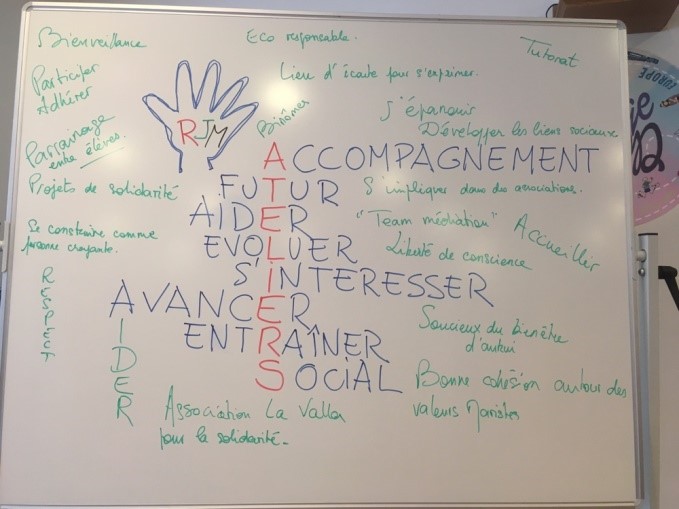 Bienveillance
Eco responsable.
Tutorat
Participer
Adhérer
Lieu d'écoute pour s'exprimer.
RJM
Binômes
S'épanouir
Développer les liens sociaux
Parrainage
entre élèves.
ACCOMPAGNEMENT
Projets de solidarité
FUTUR
S'impliquer dans des associations.
AIDER
"Team médiation"
Accueillir
Se construire comme
personne croyante.
EVOLUER
Liberté de conscience
S'INTERESSER
RESPECT
AVANCER
AIDER
Soucieux du bienêtre
d'autrui
ENTRAÎNER
SOCIAL
Bonne cohésion autour des
valeurs Maristes
Association La Valla
pour la solidarité.
EUROPE